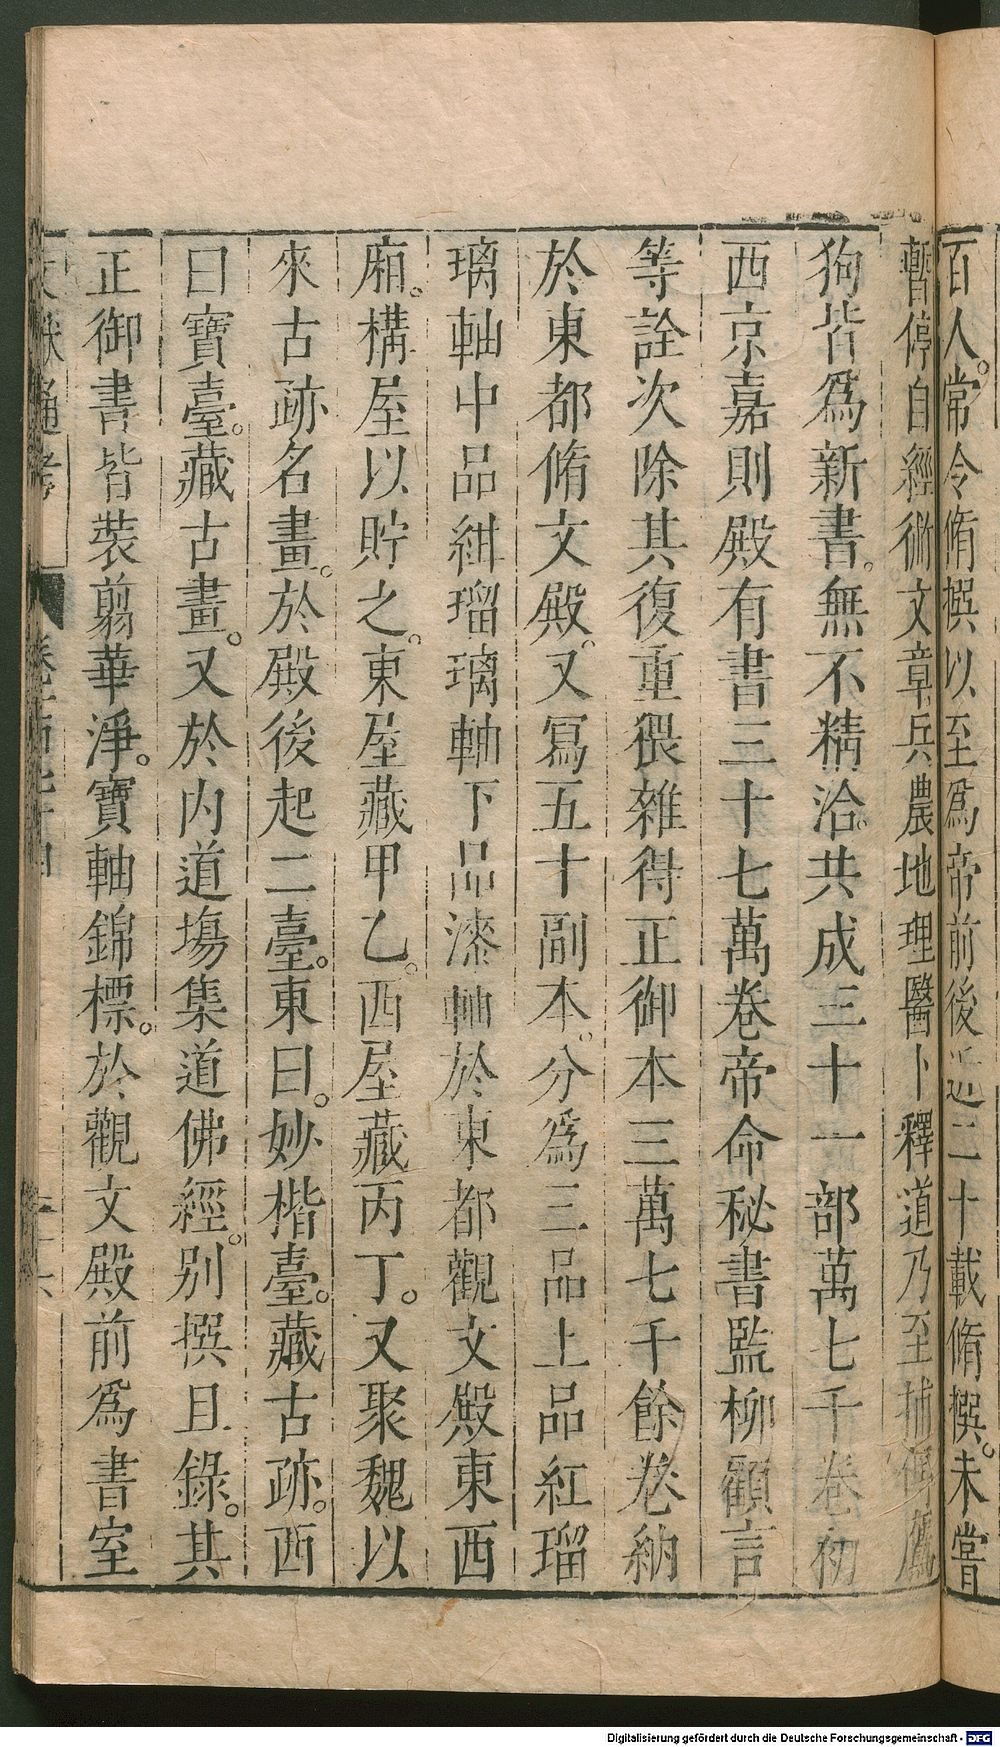 百人。常令脩撰以至爲帝前後近二十載脩撰。未嘗
暫停自經術文章兵農地理醫卜釋道乃至捕搏鷹
狗皆爲新書。無不精洽。共成三十一部萬七千卷初
西京嘉則殿有書三十七萬卷帝命秘書監柳顧言
等詮次除其復重猥雜得正御本三萬七千餘卷納
於東都脩文殿。又冩五十副本。分爲三品上品紅瑠
璃軸中品紺瑠璃軸下品漆軸於東都觀文殿東西
廂。構屋以貯之。東屋藏甲乙。西屋藏丙丁。又聚魏以
來古跡名畫。於殿後起二臺。東曰。妙楷臺。藏古跡。西
曰寶臺。藏古畫。又於内道塲集道佛經。別撰且錄。其
正御書皆裝翦華淨。寶軸錦標。於觀文殿前爲書室
文獻通考
卷一百七十四
Digitalisierung gefördert durch die Deutsche Forschungsgemeinschaft - DFG